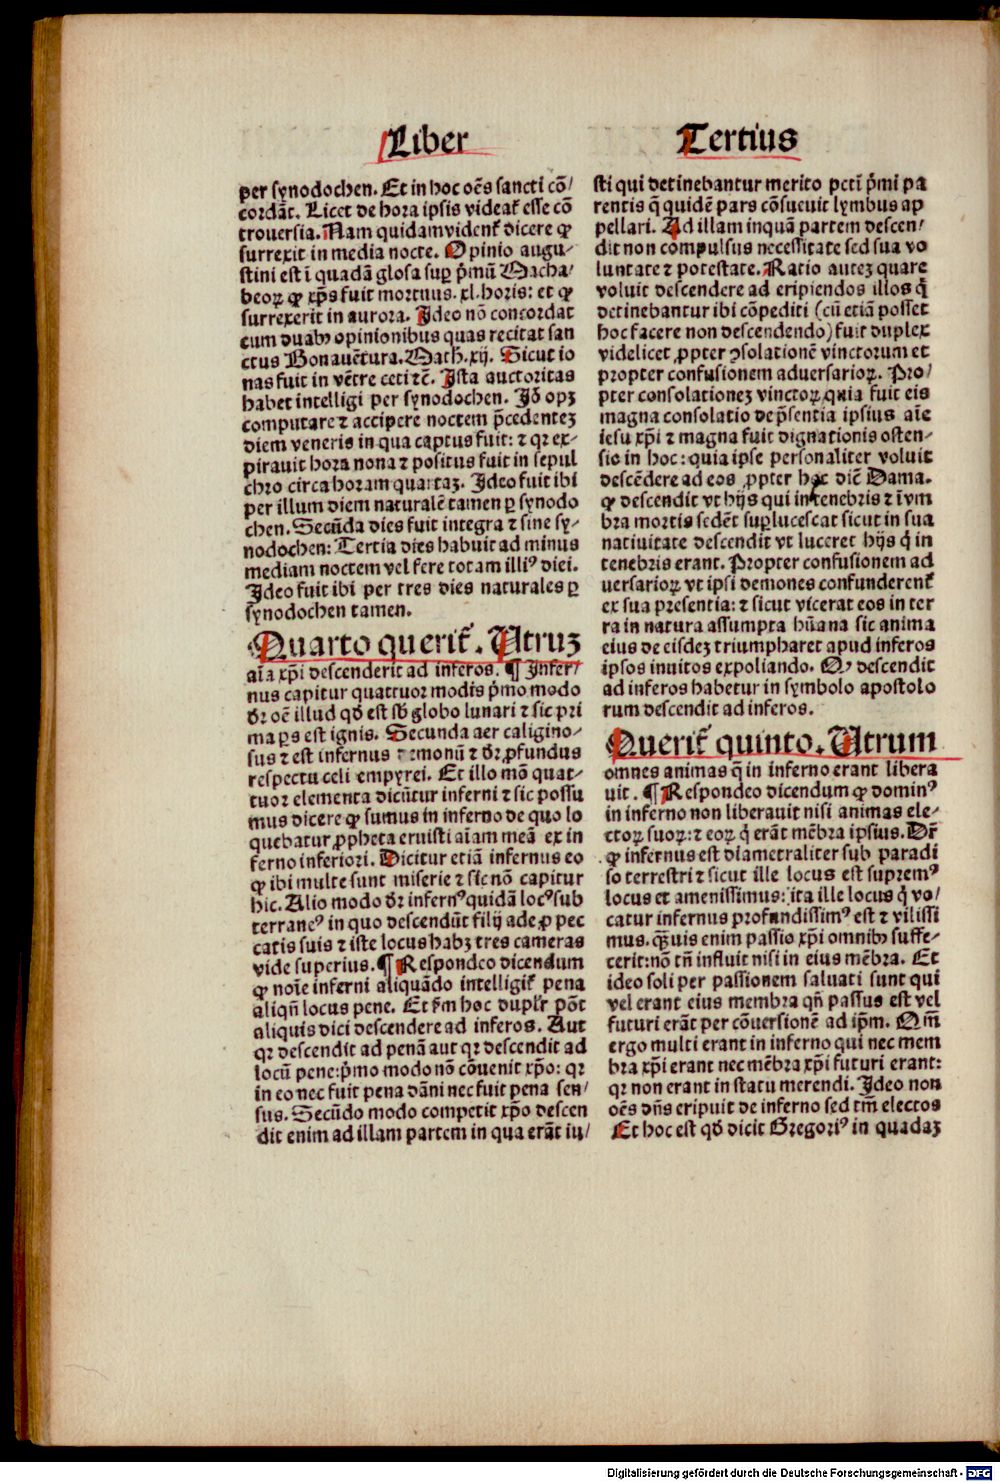 Liber
Tertius
per synodochen. Et in hoc oēs sancti cō/
cordāt. Licet de hora ipsis videat̄ esse cō
trouersia. Nam quidam vident̄ dicere ꝙ
surrexit in media nocte. Opinio augu-
stini est ī quadā glosa suꝑ p̄mū Macha/
beoꝝ ꝙ xp̄s fuit mortuus .xl. horis: et ꝙ
surrexerit in aurora. Ideo nō concordat
cum duabꝰ opinionibus quas recitat san
ctus Bonauētura. Math. xij. Sicut io
nas fuit in vētre ceti ⁊c̄. Ista auctoritas
habet intelligi per synodochen. Iō opꝫ
computare ⁊ accipere noctem p̄cedenteꝫ
diem veneris in qua captus fuit: ⁊ qꝛ ex-
pirauit hora nona ⁊ positus fuit in sepul
chro circa horam quartaꝫ. Ideo fuit ibi
per illum diem naturalē tamen ꝑ synodo
chen. Secūda dies fuit integra ⁊ sine sy-
nodochen: Tertia dies habuit ad minus
mediam noctem vel fere totam illiꝰ diei.
Ideo fuit ibi per tres dies naturales ꝑ
synodochen tamen.
Quarto querit̄. Utruꝫ
aīa xp̄i descenderit ad inferos. ¶ Infer/
nus capitur quattuor modis p̄mo modo
dr̄ oē illud qd̄ est sb̄ globo lunari ⁊ sic pri
ma ꝑs est ignis. Secunda aer caligino-
sus ⁊ est infernus demonū ⁊ dr̄ ꝓfundus
respectu celi empyrei. Et illo mō quat-
tuor elementa dicūtur inferni ⁊ sic possu
mus dicere ꝙ sumus in inferno de quo lo
quebatur ꝓpheta eruisti aīam meā ex in
ferno inferiori. Dicitur etiā infernus eo
ꝙ ibi multe sunt miserie ⁊ sic nō capitur
hic. Alio modo dr̄ infernꝰ quidā locꝰ sub
terraneꝰ in quo descendūt filij ade ꝓ pec
catis suis ⁊ iste locus habꝫ tres cameras
vide superius. ¶ Respondeo dicendum
ꝙ noīe inferni aliquādo intelligit̄ pena
aliqn̄ locus pene. Et s̄m hoc duplr̄ pōt
aliquis dici descendere ad inferos. Aut
qꝛ descendit ad penā aut qꝛ descendit ad
locū pene: p̄mo modo nō cōuenit xp̄o: qꝛ
in eo nec fuit pena dāni nec fuit pena sen/
sus. Secūdo modo competit xp̄o descen
dit enim ad illam partem in qua erāt iu/
sti qui detinebantur merito pctī p̄mi pa
rentis q̄ quidē pars cōsueuit lymbus ap
pellari. Ad illam inquā partem descen/
dit non compulsus necessitate sed sua vo
luntate ⁊ potestate. Ratio auteꝫ quare
voluit descendere ad eripiendos illos q̄
detinebantur ibi cōpediti (cū etiā posset
hoc facere non descendendo) fuit duplex
videlicet ꝓpter ꝯsolationē vinctorum et
propter confusionem aduersarioꝝ. Pro/
pter consolationeꝫ vinctoꝝ quia fuit eis
magna consolatio de p̄sentia ipsius aīe
iesu xp̄i ⁊ magna fuit dignationis osten-
sio in hoc: quia ipse personaliter voluit
descēdere ad eos ꝓpter hoc diē Dama.
ꝙ descendit vt hijs qui in tenebris ⁊ ī vm
bra mortis sedēt suꝑlucescat sicut in sua
natiuitate descendit vt luceret hijs q̄ in
tenebris erant. Propter confusionem ad
uersarioꝝ vt ipsi demones confunderent̄
ex sua presentia: ⁊ sicut vicerat eos in ter
ra in natura assumpta hūana sic anima
eius de eisdeꝫ triumpharet apud inferos
ipsos inuitos expoliando. Qꝙ descendit
ad inferos habetur in symbolo apostolo
rum descendit ad inferos.
Querit̄ quinto. Utrum
omnes animas q̄ in inferno erant libera
uit. ¶ Respondeo dicendum ꝙ dominꝰ
in inferno non liberauit nisi animas ele-
ctoꝝ suoꝝ: ⁊ eoꝝ q̄ erāt mēbra ipsius. Dr̄
ꝙ infernus est diametraliter sub paradi
so terrestri ⁊ sicut ille locus est supremꝰ
locus et amenissimus: ita ille locus q̄ vo/
catur infernus profundissimꝰ est ⁊ vilissi
mus. qꝫuis enim passio xp̄i omnibꝰ suffe-
cerit: nō tn̄ influit nisi in eius mēbra. Et
ideo soli per passionem saluati sunt qui
vel erant eius membra qn̄ passus est vel
futuri erāt per cōuersionē ad ip̄m. Qm̄
ergo multi erant in inferno qui nec mem
bra xp̄i erant nec mēbra xp̄i futuri erant:
qꝛ non erant in statu merendi. Ideo non
oēs dn̄s eripuit de inferno sed tm̄ electos
Et hoc est qd̄ dicit Gregoriꝰ in quadaꝫ
Digitalisierung gefördert durch die Deutsche Forschungsgemeinschaft - DFG